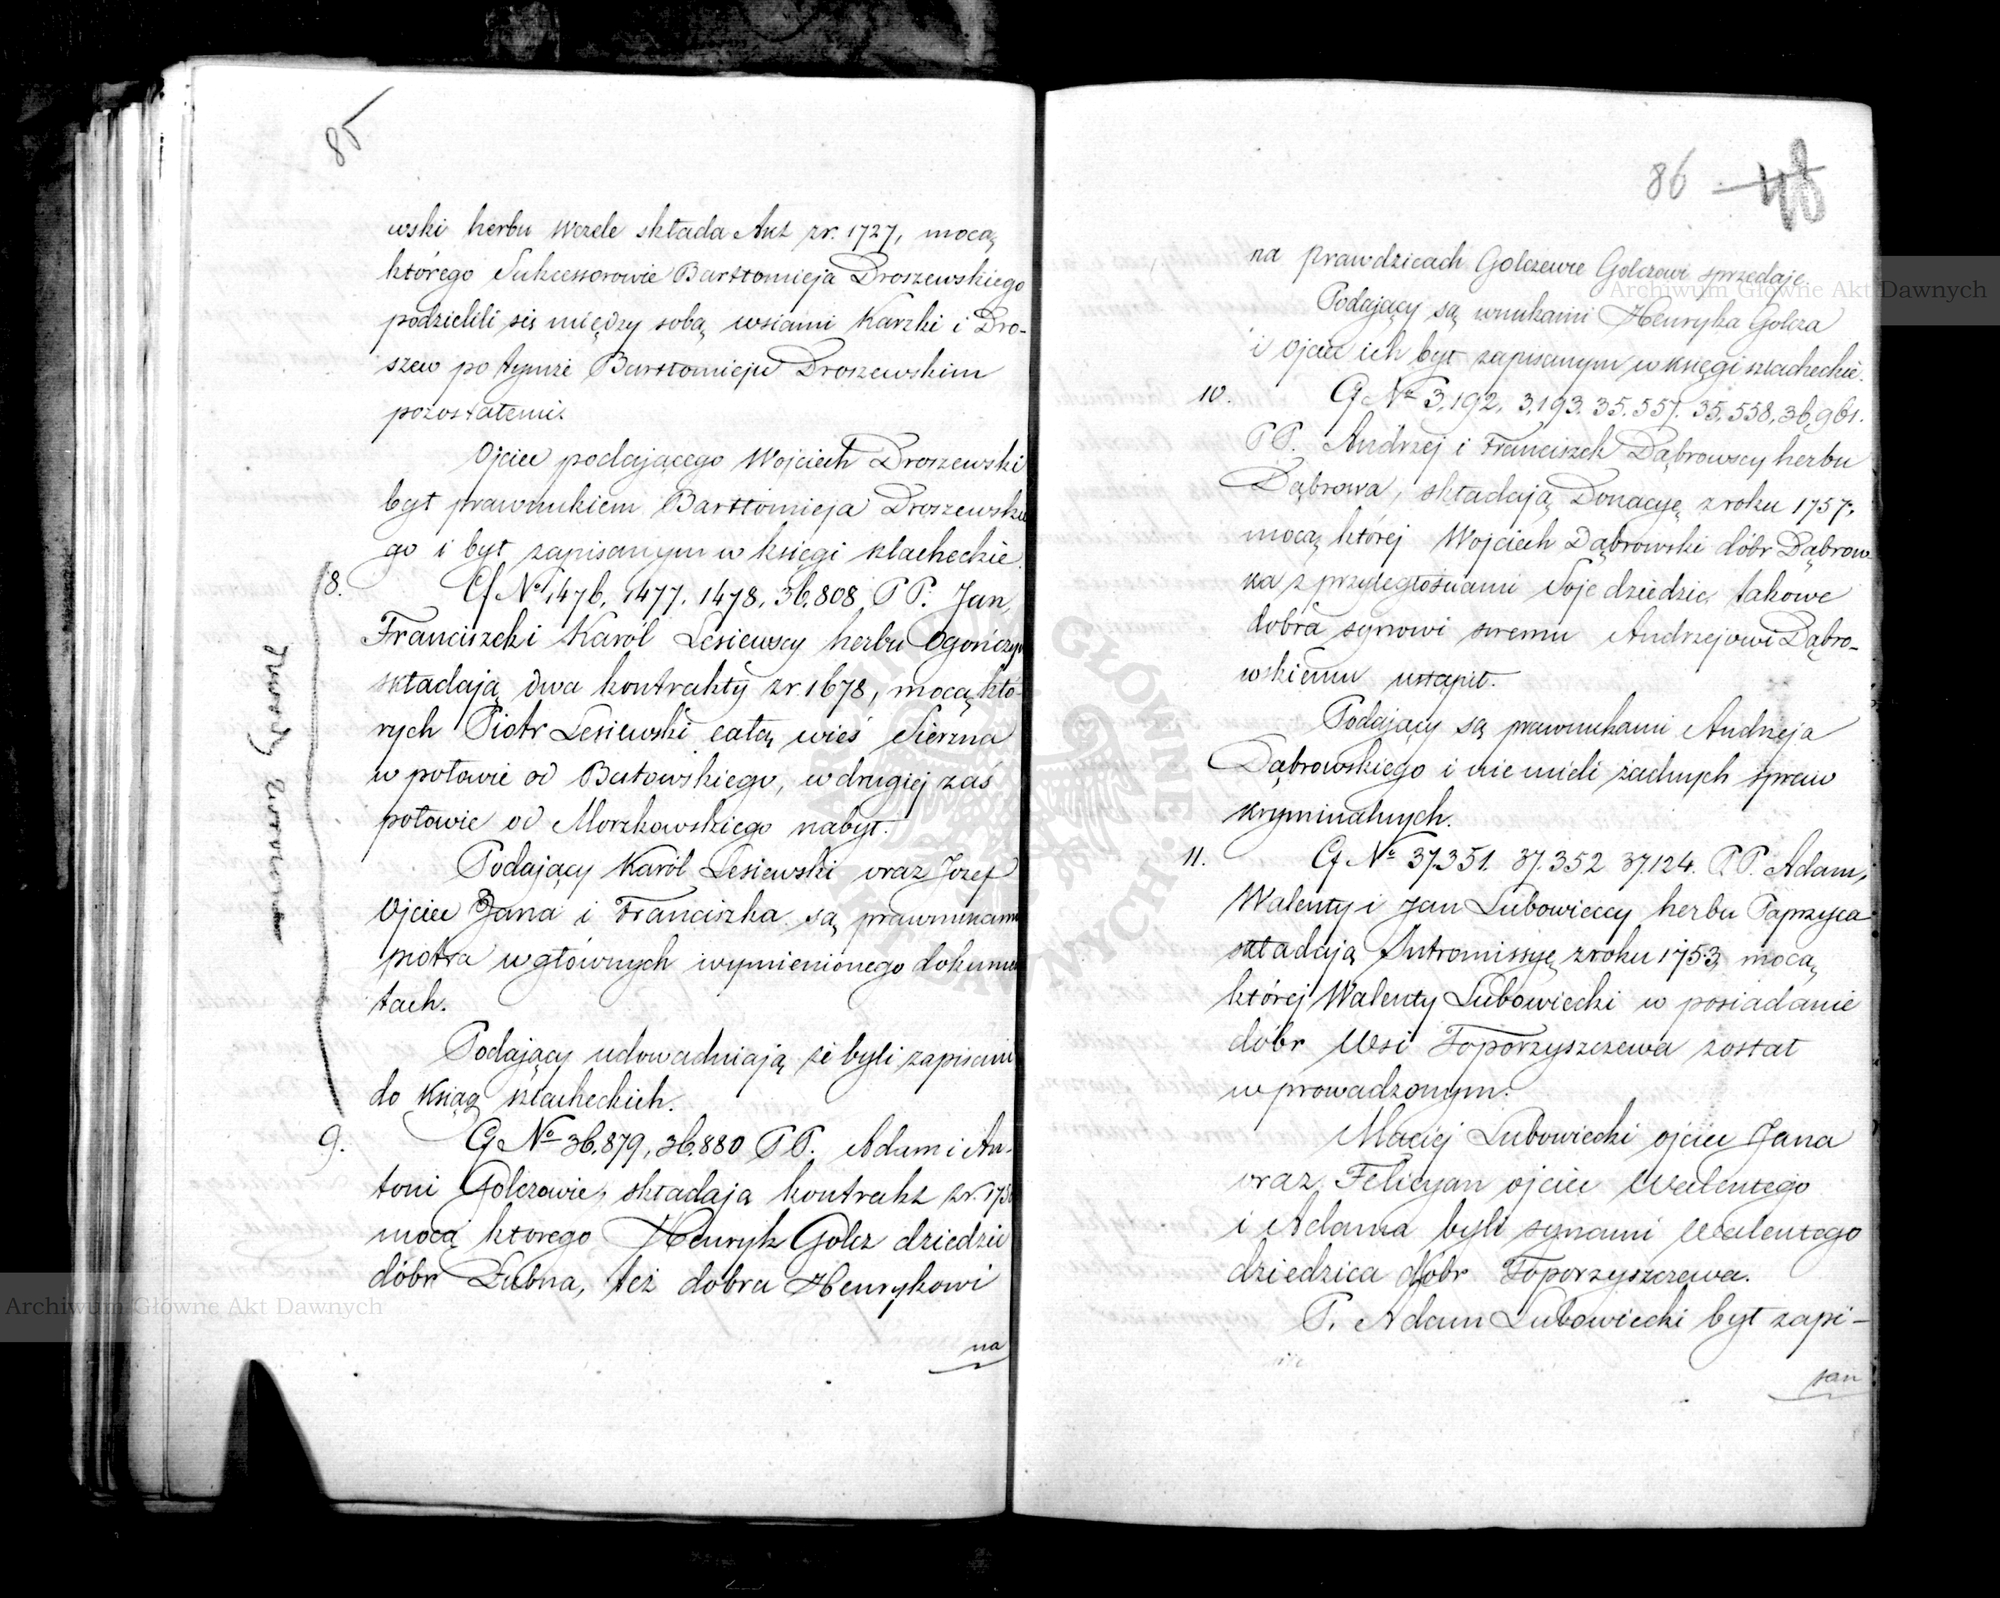 85
wski herbu Wczele składa Akt z r. 1727, mocą
którego Sukcessorowie Bartłomieja Droszewskiego
podzielili się między sobą wsiami Karzki i Dro-
szew po tymże Bartłomieju Droszewskim
pozostałemi.
Ojciec podającego Wojciech Droszewski
był prawnukiem Bartłomieja Droszewskie
go i był zapisanym w księgi szlacheckie.
8. Cf No 1476, 1477, 1478, 36,808 PP. Jan,
Franciszek i Karól Lesiewscy herbu Ogończyk
składają dwa kontrakty z r. 1678, mocą któ-
rych Piotr Lesiewski całą wieś Sierzna
w połowie od Butowskiego, w drugiej zaś
połowie od Morzkowskiego nabył.
Podający Karól Lesiewski oraz Józef
Ojciec Jana i Franciszka są prawnukami
Piotra w głównych wymienionego dokumen
tach.
Podający udowadniają że byli zapisani
do Ksiąg szlacheckich.
9. Cf No 36,879, 36,880 PP. Adam i An-
toni Golczowie, składaja kontrakt z r. 175
mocą ktorego Henryk Golcz dziedzic
dóbr Łubna, też dobra Henrykowi
na
86
48
na Prawdzicach Golczewie Golczowi sprzedaje.
Podający są wnukami Henryka Golcza
i Ojciec ich był zapisanym w księgi szlacheckie.
10. Cf No 3,192, 3,193. 35,557. 35,558, 36,961.
PP. Andrzej i Franciszek Dąbrowscy herbu
Dąbrowa, składają Donacyę z roku 1757,
mocą której Wojciech Dąbrowski dóbr Dąbrow-
ka z przyległościami Soje dziedzic, takowe
dobra synowi swemu Andrzejowi Dąbro-
wskiemu ustąpił.
Podający są prawnukami Andrzeja
Dąbrowskiego i nie mieli żadnych spraw
kryminalnych.
11. Cf No 37.351. 37.352 37.124. PP. Adam,
Walenty i Jan Lubowieccy herbu Paprzyca
składają Intromissyę z roku 1753, mocą
której Walenty Lubowiecki w posiadanie
dóbr Wsi Toporzyszczewa został
wprowadzonym.
Maciej Lubowiecki ojciec Jana
oraz Felicyan ojciec Walentego
i Adama byli synami Walentego
dziedzica dóbr Toporzyszczewa.
P. Adam Lubowiecki był zapi-
san
Archiwum Główne Akt Dawnych
Archiwum Główne Akt Dawnych
ARCHIWUM GŁÓWNE AKT DAWNYCH